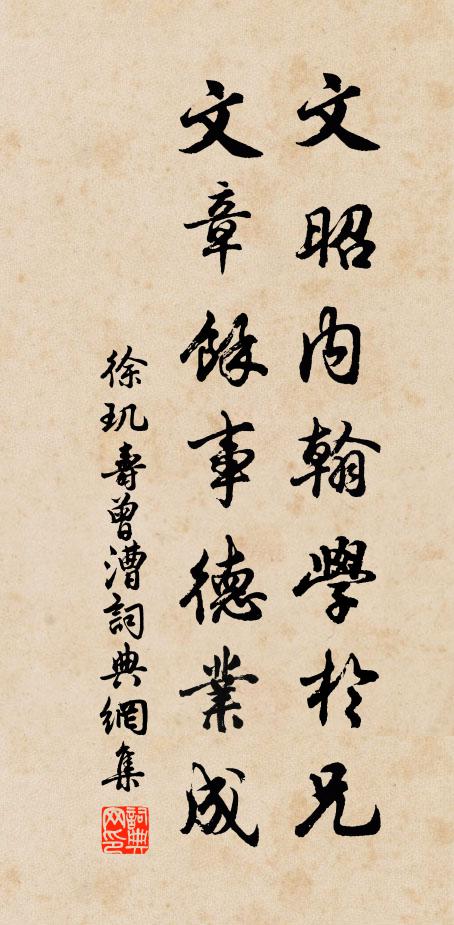 文昭内翰學於兄
文章餘事德業成
徐玑壽曾漕詞典網集
詞典网印